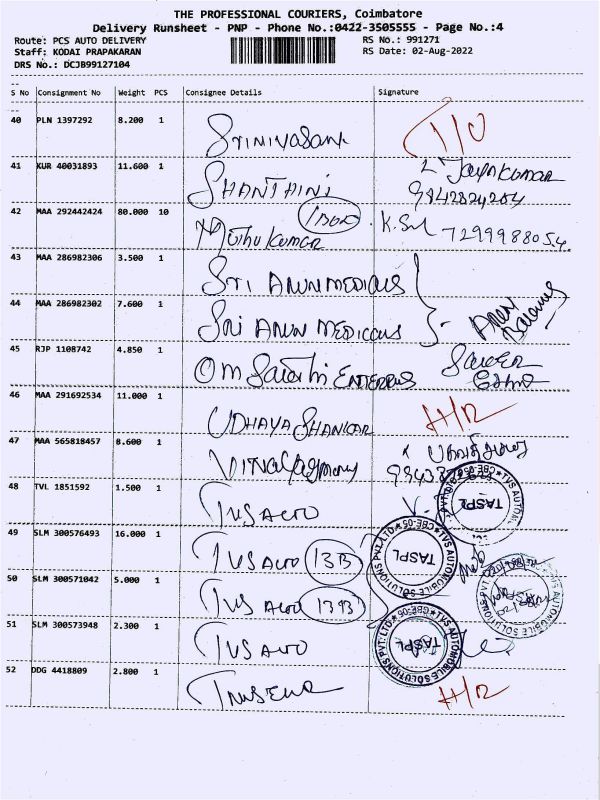 THE PROFESSIONAL COURIERS, Coimbatore
Delivery Runsheet - PNP - Phone No.:0422-3505555 - Page No.:4
Route: PCS AUTO DELIVERY RS No.: 991271
Staff: KODAI PRAPAKARAN RS Date: 02-Aug-2022
DRS No.: DCJB99127104
S No Consignment No Weight PCS Consignee Details Signature
40 PLN 1397292 8.200 1 Srinivasan T/O
41 KUR 40031893 11.600 1 SHANTHINI Jayakumar
9842824284
42 MAA 292442424 80.000 10 Muthu Kumar 7299988054
43 MAA 286982306 3.500 1 Sri ARUN MEDICALS
44 MAA 286982302 7.600 1 Sri ARUN MEDICALS
45 RJP 1108742 4.850 1 OM Sakthi ENTERPRISES
46 MAA 291692534 11.000 1 UDHAYA SHANKAR H/R
47 MAA 565818457 8.600 1
48 TVL 1851592 1.500 1 TVS AUTO
49 SLM 300576493 16.000 1 TVS AUTO 13B
50 SLM 300571042 5.000 1 TVS AUTO 13B
51 SLM 300573948 2.300 1 TVS AUTO
52 DDG 4418809 2.800 1 H/R
TVS AUTOMOBILE SOLUTIONS PVT. LTD. CBE-05
TASPL
TVS AUTOMOBILE SOLUTIONS PVT. LTD. CBE-05
TASPL